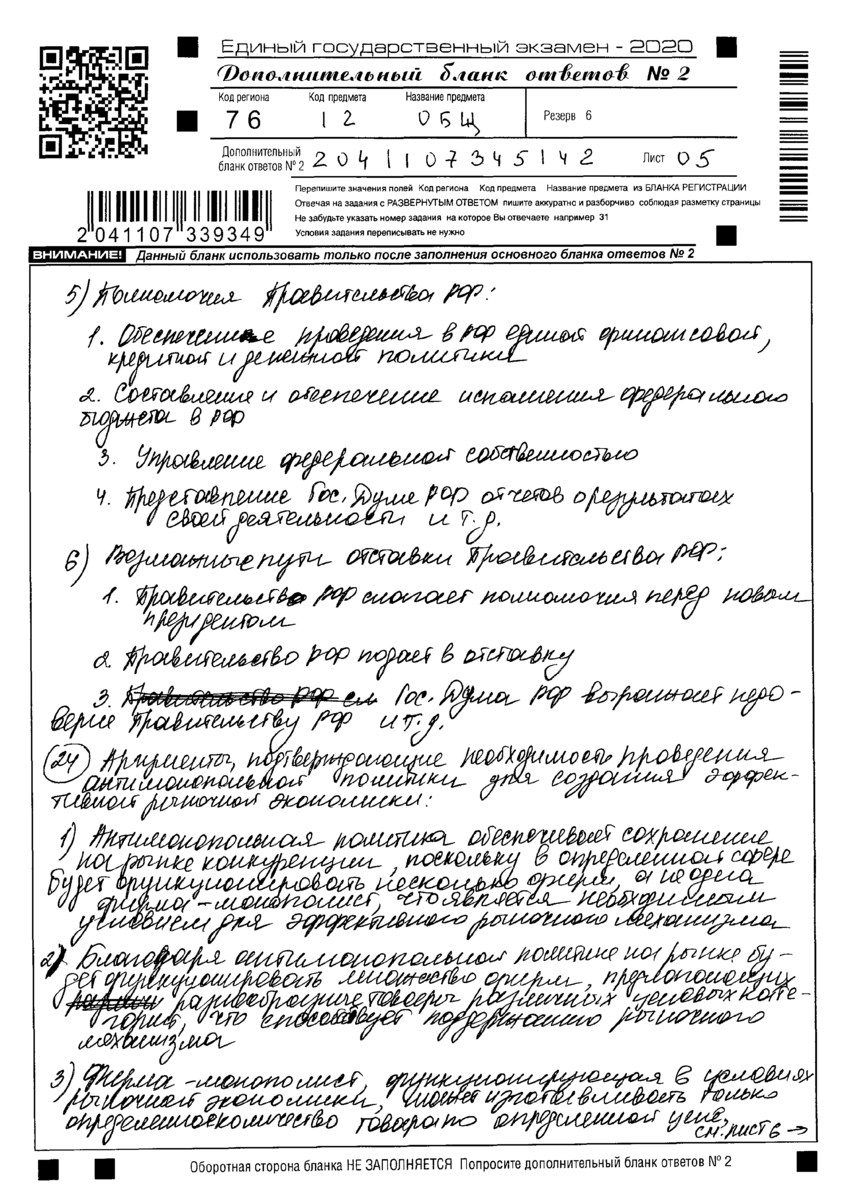 Единый государственный экзамен - 2020
Дополнительный бланк ответов № 2
Код региона Код предмета Название предмета
76 12 ОБЩ Резерв 6
Дополнительный
бланк ответов № 2 2041107345142 Лист 05
Перепишите значения полей Код региона Код предмета Название предмета из БЛАНКА РЕГИСТРАЦИИ
Отвечая на задания с РАЗВЕРНУТЫМ ОТВЕТОМ пишите аккуратно и разборчиво соблюдая разметку страницы
Не забудьте указать номер задания на которое Вы отвечаете например 31
Условия задания переписывать не нужно
2041107 339349
ВНИМАНИЕ! Данный бланк использовать только после заполнения основного бланка ответов № 2
5) Полномочия Правительства РФ:
1. Обеспечение проведения в РФ единой финансовой,
кредитной и денежной политики
2. Составление и обеспечение исполнения федерального
бюджета в РФ
3. Управление федеральной собственностью
4. Представление Гос. Думе РФ отчетов о результатах
своей деятельности и т.д.
6) Возможные пути отставки Правительства РФ:
1. Правительство РФ слагает полномочия перед новым
президентом
2. Правительство РФ подает в отставку
3. Правительство РФ сл Гос. Дума РФ выражает недо-
верие Правительству РФ и т.д.
24 Аргументы, подтверждающие необходимость проведения
антимонопольной политики для создания эффек-
тивной рыночной экономики:
1) Антимонопольная политика обеспечивает сохранение
на рынке конкуренции, поскольку в определенной сфере
будет функционировать несколько фирм, а не одна
фирма-монополист, что является необходимым
условием для эффективного рыночного механизма
2) Благодаря антимонопольной политике на рынке бу-
дет функционировать множество фирм, предлагающих
разнообразные товары различных ценовых кате-
горий, что способствует поддержанию рыночного
механизма
3) Фирма-монополист, функционирующая в условиях
рыночной экономики, может изготавливать только
определенное количество товара по определенной цене,
см. лист 6 →
Оборотная сторона бланка НЕ ЗАПОЛНЯЕТСЯ Попросите дополнительный бланк ответов № 2